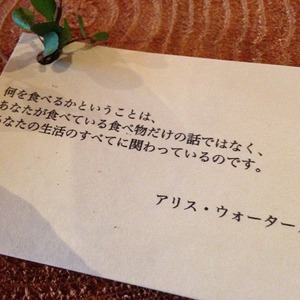 何を食べるかということは、
あなたが食べている食べ物だけの話ではなく、
あなたの生活のすべてに関わっているのです。
アリス・ウォーター